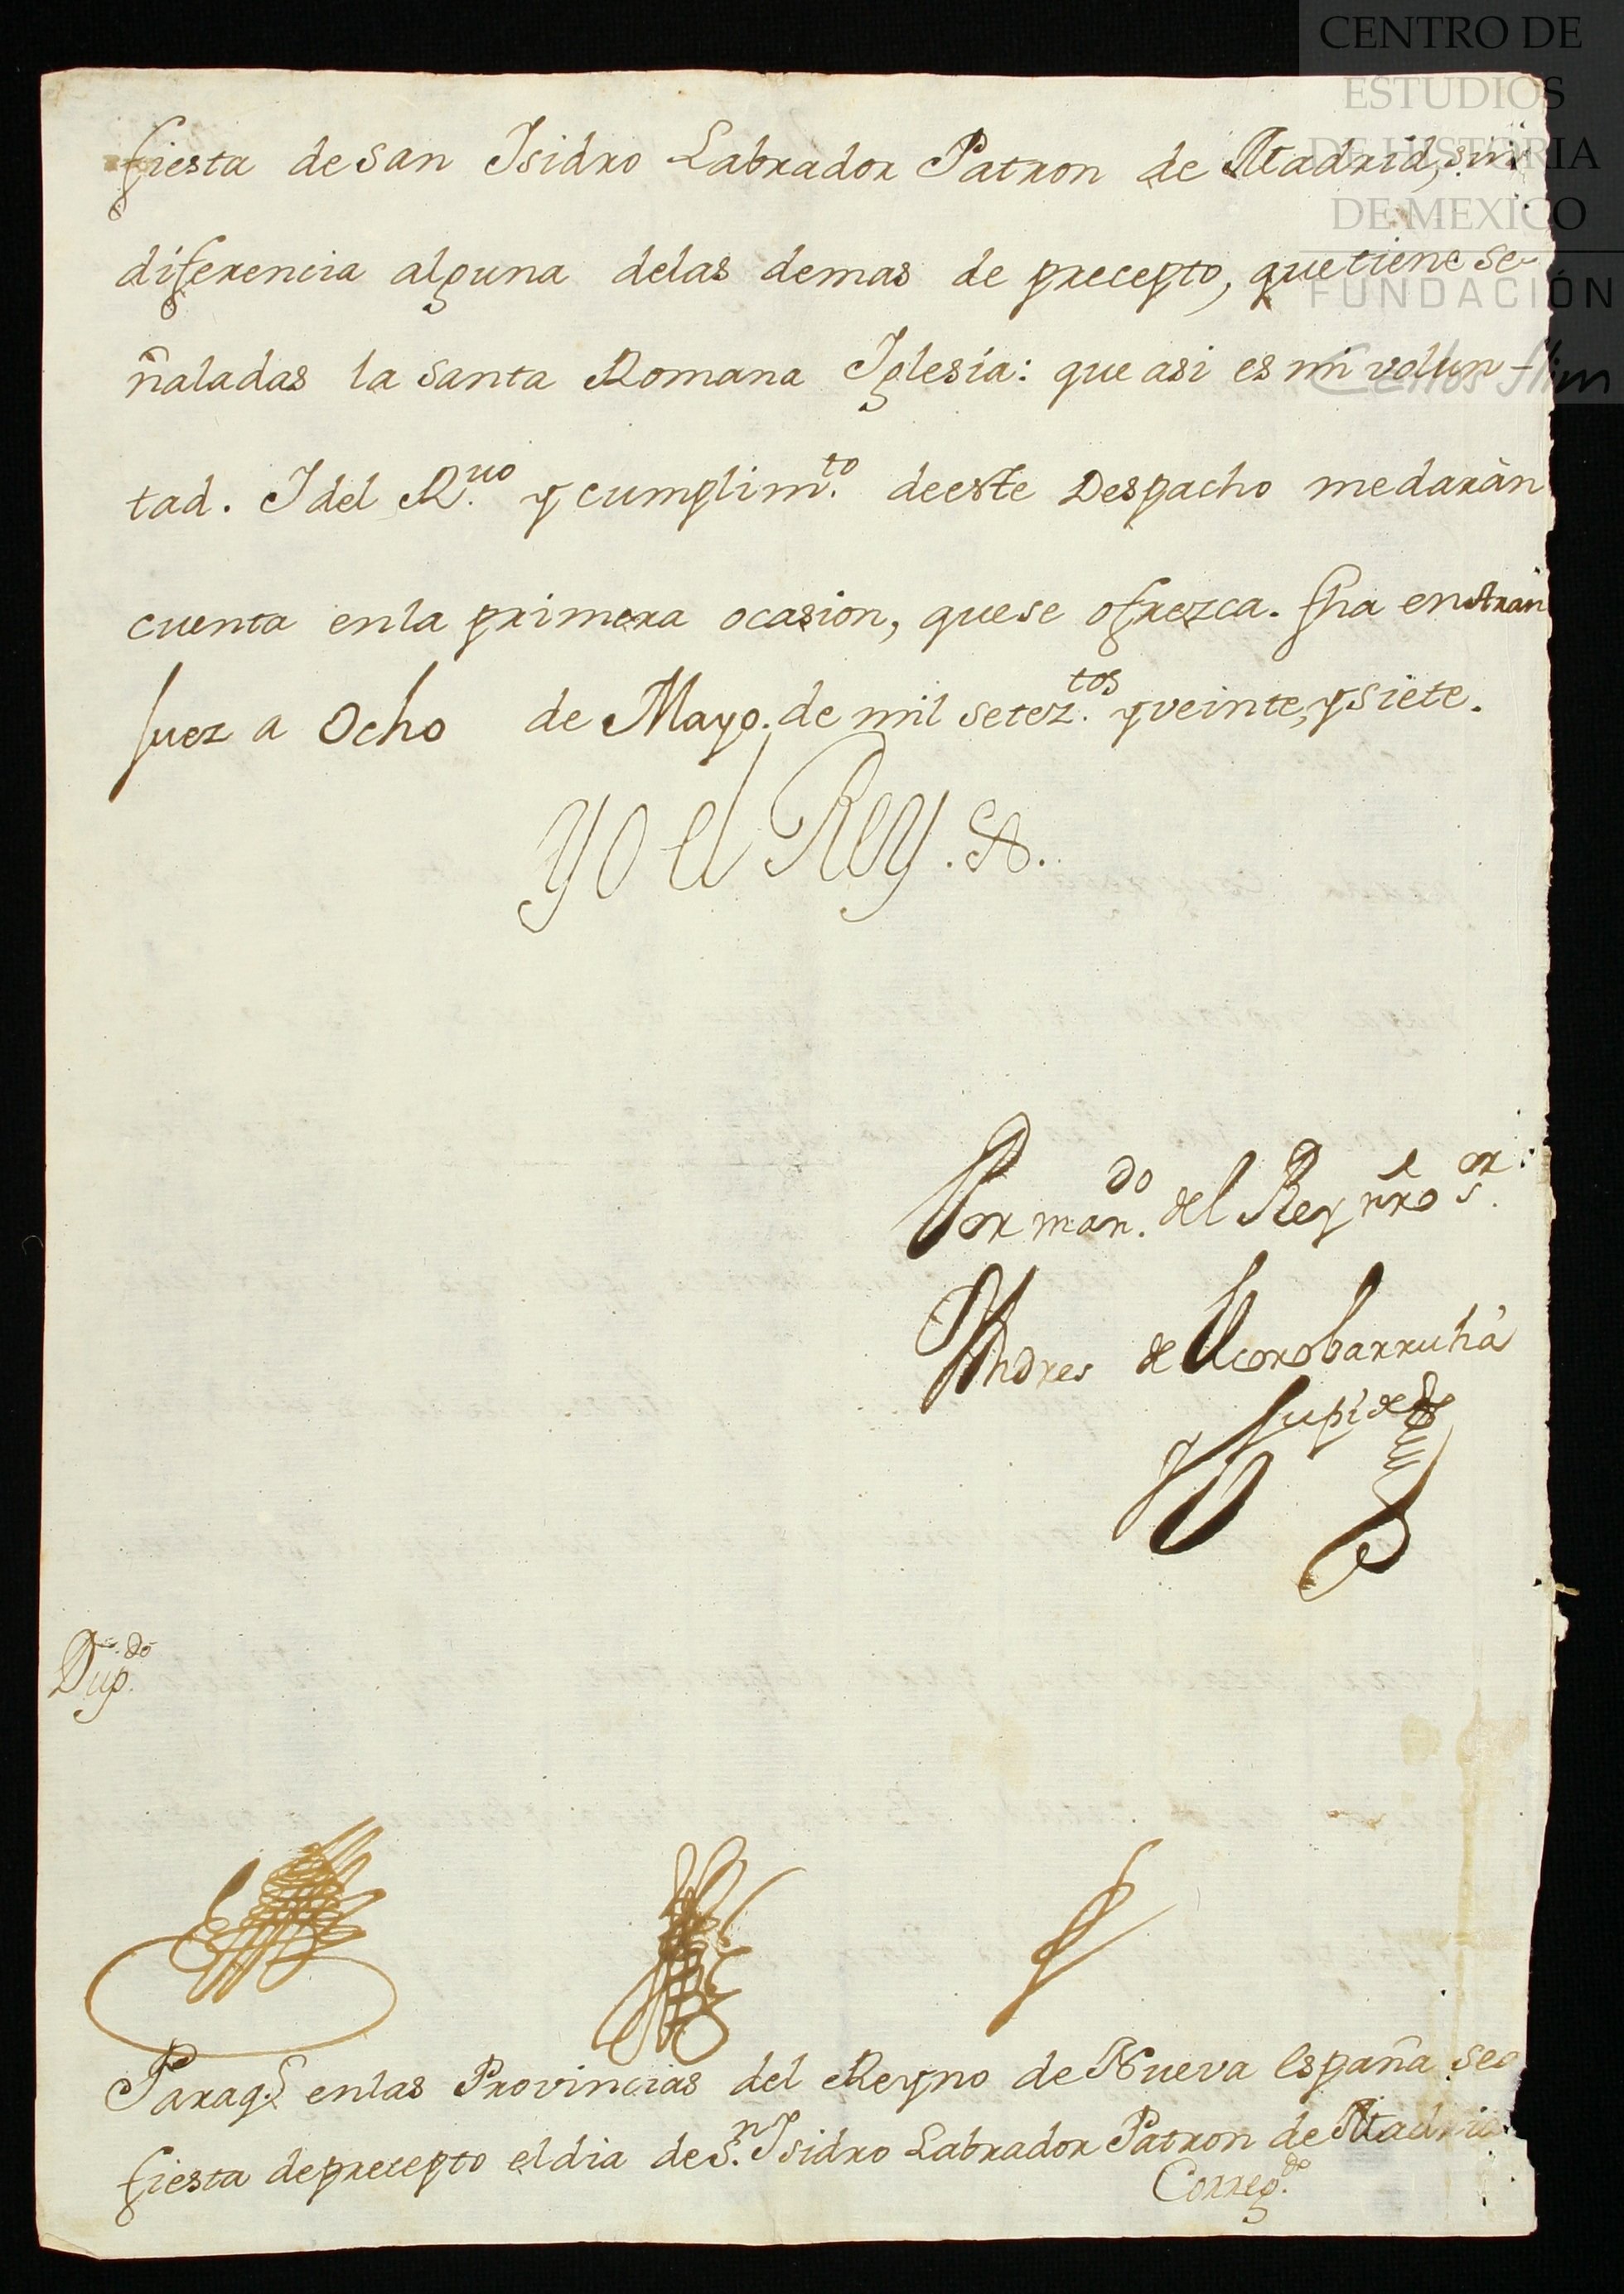 CENTRO DE
ESTUDIOS
DE HISTORIA
DE MEXICO
FUNDACIÓN
Carlos Slim
fiesta de san Isidro Labrador Patron de Madrid, sin
diferencia alguna delas demas de precepto, quetiene se-
ñaladas la santa Romana Iglesia: que asi es mi volun-
tad. I del R.uo y cumplim.to deeste Despacho medaràn
cuenta enla primera ocasion, quese ofrezca. fha enAran
juez a Ocho de Mayo. de mil setez.tos yveinte, ysiete.
Yo el Rey.
Por man.do del Rey nro s.or
Andres de
y
Dup.do
Paraq.e enlas Provincias del Reyno de Nueva españa sea
fiesta deprecepto eldia deS.n Isidro Labrador Patron de Madrid
Correg.do